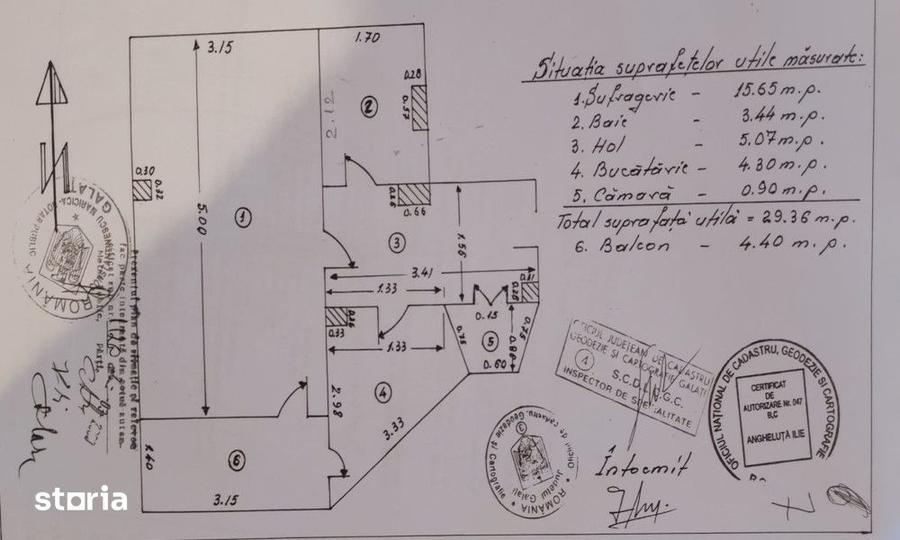 Situația suprafețelor utile măsurate:
1. Sufragerie - 15.65 m.p.
2. Baie - 3.44 m.p.
3. Hol - 5.07 m.p.
4. Bucătărie - 4.30 m.p.
5. Cămară - 0.90 m.p.
Total suprafață utilă = 29.36 m.p.
6. Balcon - 4.40 m.p.
3.15
1.70
2.12
2
0.28
0.57
0.30
0.32
5.00
1
0.66
3
1.56
3.41
1.33
0.28
0.33
1.33
0.15
0.75
5
0.60
4
2.98
3.33
6
1.40
3.15
N
GALAȚI
NOTAR PUBLIC
ROMÂNIA
Prezentul plan de situație
face parte integrantă din
OFICIUL JUDEȚEAN DE CADASTRU
GEODEZIE ȘI CARTOGRAFIE GALAȚI
S.C.D.L.N.G.C.
INSPECTOR DE SPECIALITATE
OFICIUL NAȚIONAL DE CADASTRU, GEODEZIE ȘI CARTOGRAFIE
CERTIFICAT
DE
AUTORIZARE Nr. 047
B,C
ANGHELUȚĂ ILIE
Oficiul de Cadastru, Geodezie și Cartografie
Județul Galați
ROMÂNIA
Întocmit
storia